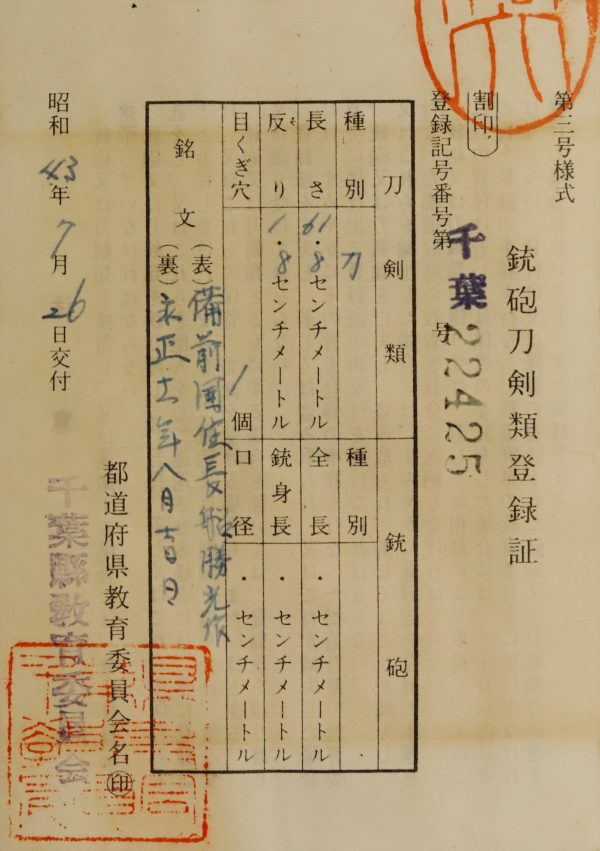 第三号様式
銃砲刀剣類登録証
割印
登録記号番号第 千葉 22425 号
刀剣類
種別 刀
長さ 61.8センチメートル
反り 1.8センチメートル
目くぎ穴 1個
銃砲
種別
全長 ・ センチメートル
銃身長 ・ センチメートル
口径 ・ センチメートル
銘文
(表)備前国住長船勝光作
(裏)永正十一年八月吉日
昭和43年7月26日交付
都道府県教育委員会名㊞
千葉縣教育委員会